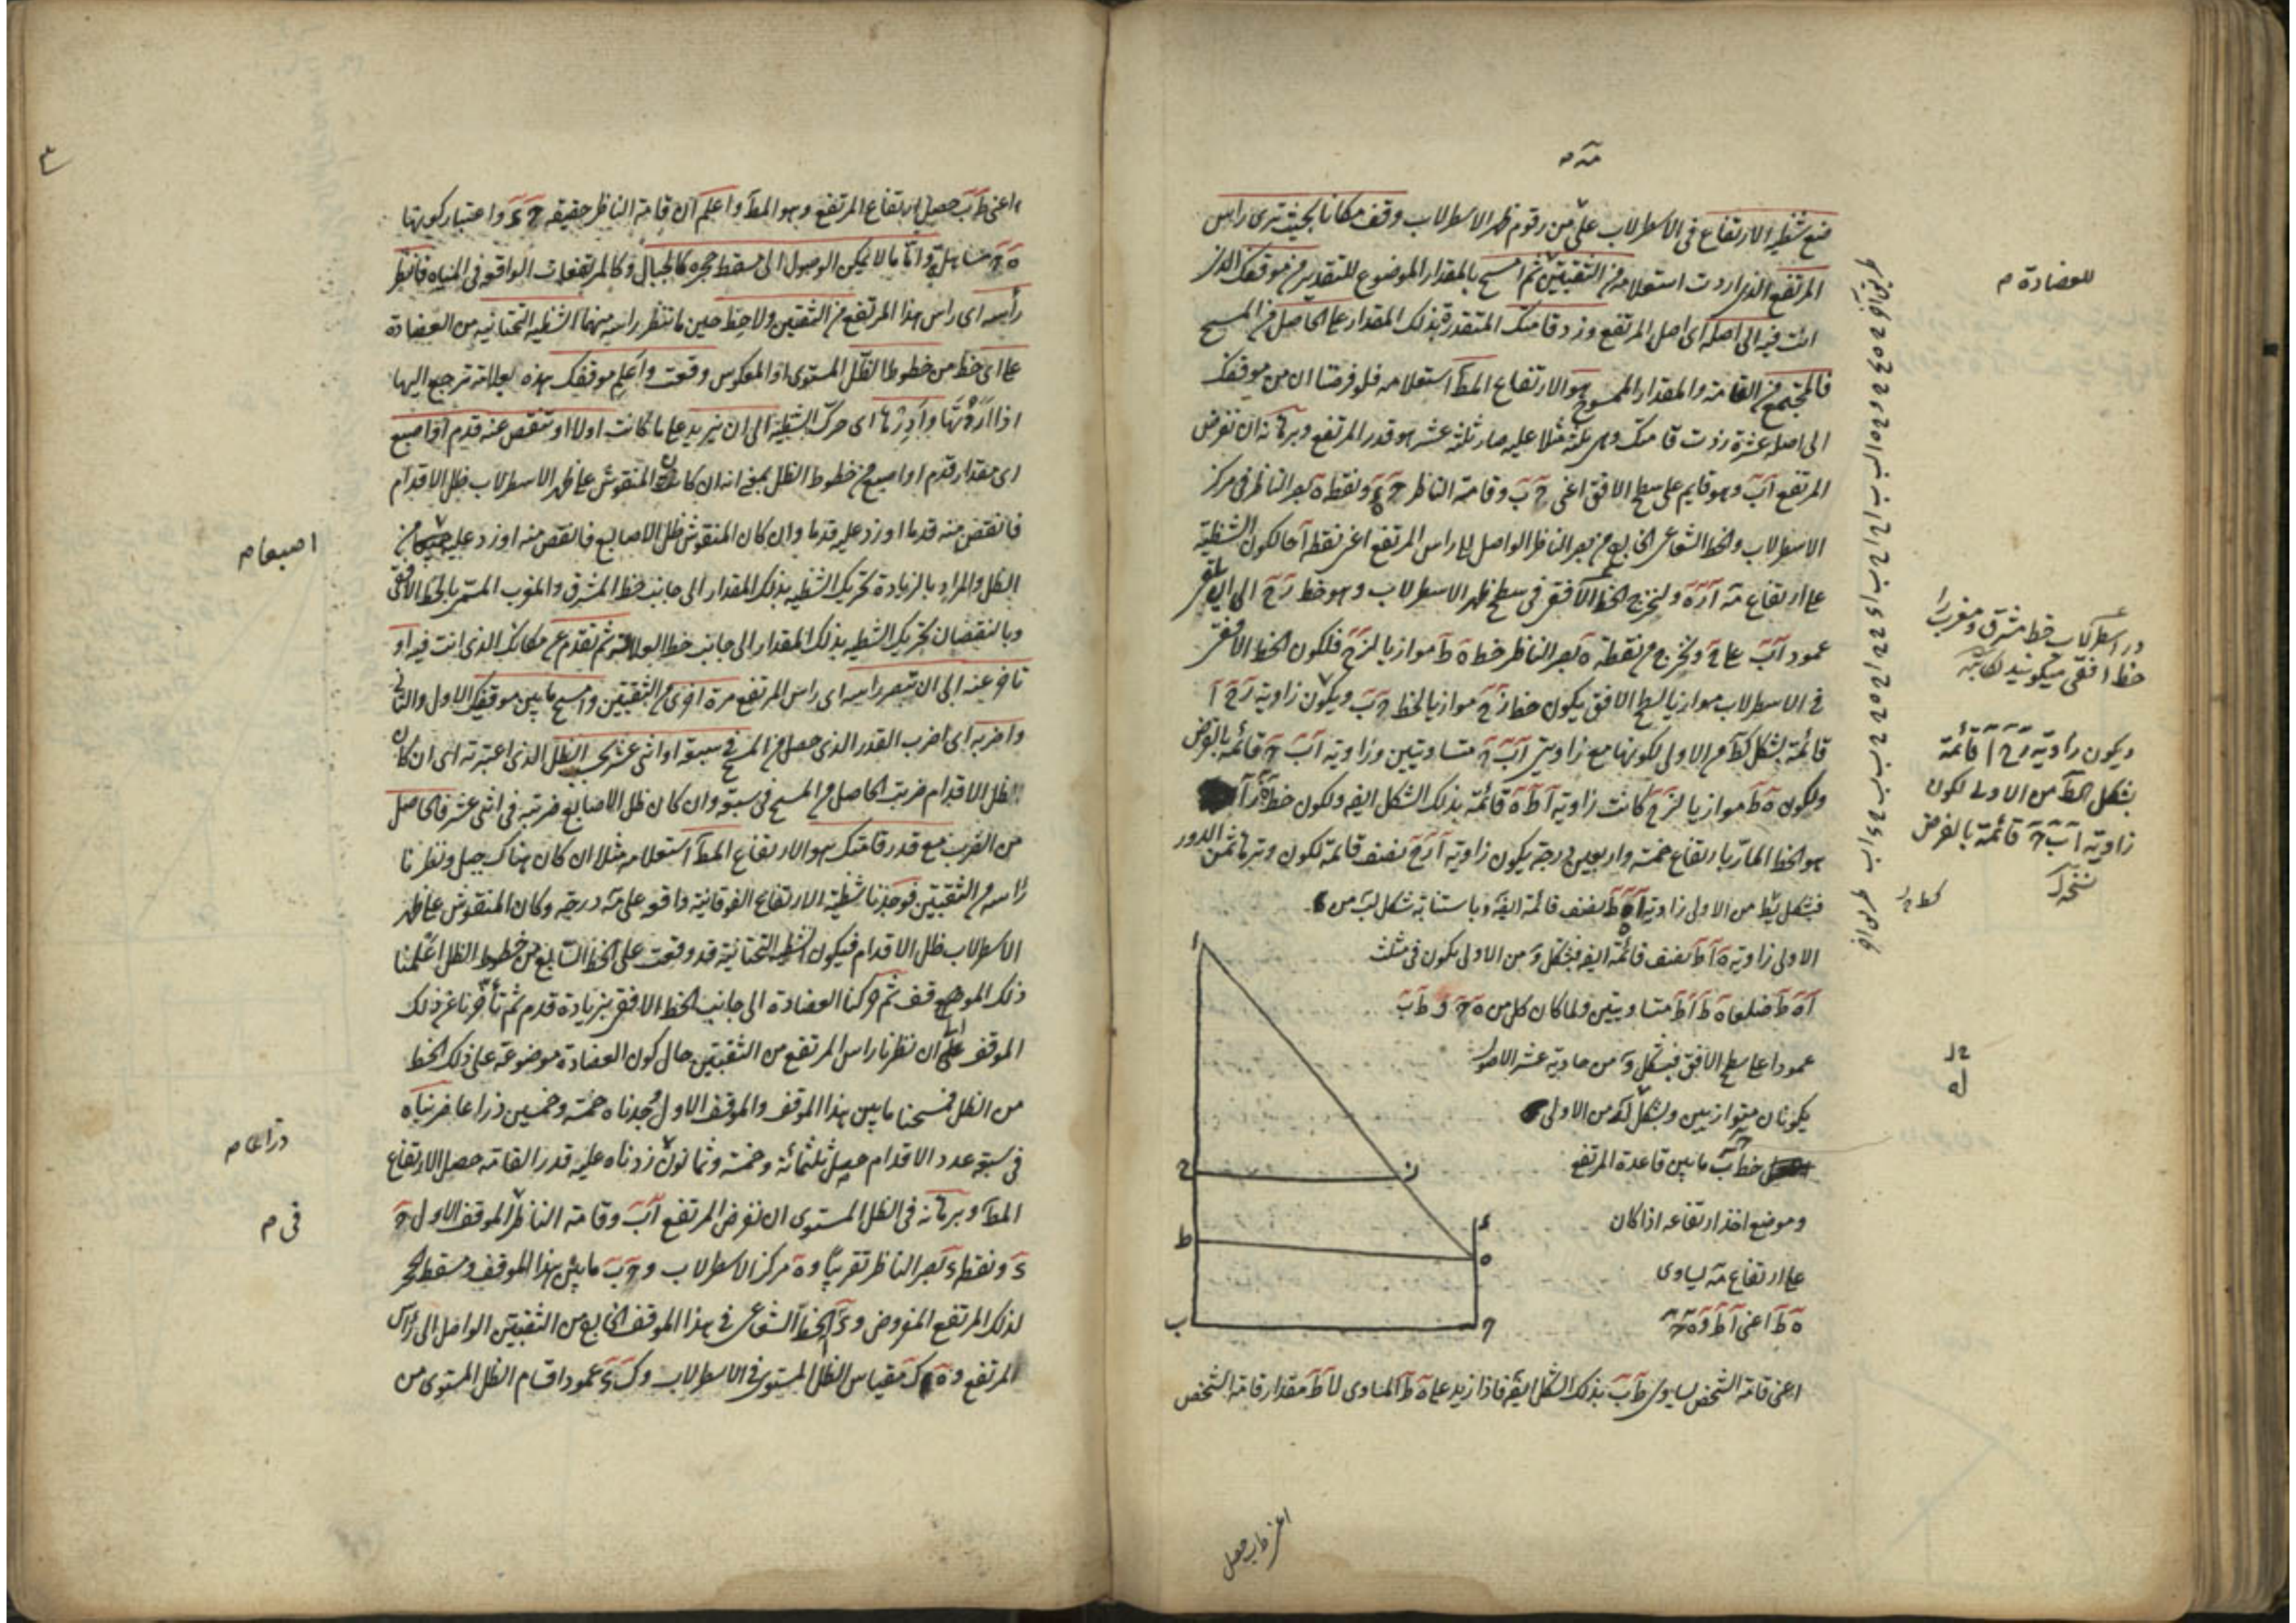 مه م
ضع شظية الارتفاع فى الاسطرلاب على من رقوم ظهر الاسطرلاب وقف مكانا بحيث ترى راس
المرتفع الذى اردت استعلامه من الثقبتين ثم امسح بالمقدار الموضوع للتقدير من موقفك الذى
انت فيه الى اصله اى اصل المرتفع وزد قامتك المتقدرة بذلك المقدار على الحاصل من المسح
فالمجتمع من القامة والمقدار الممسوح هو الارتفاع المط استعلامه فلو فرضنا ان من موقفك
الى اصله عشرة زدت قامتك وهى ثلثة مثلا عليه صار ثلثة عشر هو قدر المرتفع وبرهانه ان نفرض
المرتفع اب وهو قايم على سطح الافق اعنى ح ب وقامة الناظر ح ء ونقطة ه بصر الناظر فى مركز
الاسطرلاب والخط الشعاعى الخارج من بصر الناظر الواصل الى راس المرتفع اعنى نقطة ا حالكون الشظية
على ارتفاع مه ا ر ه ولنخرج الخط الافقى فى سطح ظهر الاسطرلاب وهو خط رح الى ان يلقى
عمود اب على ح ونخرج من نقطة ه بصر الناظر خط ه ط موازيا لرح فلكون الخط الافقى
فى الاسطرلاب موازيا لسطح الافق يكون خط رح موازيا لخط ح ب ويكون زاوية رح ا
قائمة بشكل كط من الاولى لكونها مع زاويتى اب ح متساويتين وزاوية اب ح قائمة بالفرض
ولكون ه ط موازيا لرح كانت زاوية ا ط ه قائمة بذلك الشكل ايضه ولكون خط ه ر ا
هو الخط المار بارتفاع خمسة واربعين درجة يكون زاوية ا رح نصف قائمة لكون وترها ثمن الدور
فبشكل كط من الاولى زاوية ا ه ط نصف قائمة ايضه وباستبانة شكل لب من
الاولى زاوية ه ا ط نصف قائمة ايضه فبشكل و من الاولى يكون فى مثلث
ا ه ط ضلعا ه ط ا ط متساويتين ولما كان كل من ه ح و ط ب
عمودا على سطح الافق فبشكل و من حادية عشر الاصول
يكونان متوازيين وبشكل لد من الاولى
خط ح ب ما بين قاعدة المرتفع
وموضع اخذ ارتفاعه اذا كان
على ارتفاع مه يساوى
ه ط اعنى ا ط و ه ح
اعنى قامة الشخص يساوى ط ب بذلك الشكل ايضه فاذا زيد على ه ط المساوى لا ط مقدار قامة الشخص
اعنى ط ب حصل
ا
ح
ر
ط
ء
ه
ب
ح
للعضادة م
در اسطرلاب خط مشرق ومغرب را
خط افقى ميكويند لكاتبه
ويكون زاوية رح ا قائمة
بشكل كط من الاولى لكون
زاوية اب ح قائمة بالفرض
نسخه
اعنى ط ب حصل ارتفاع المرتفع وهو المط واعلم ان قامة الناظر حقيقه ح ء واعتبار كونها
ه ح مساهلة واما ما لا يمكن الوصول الى مسقط حجره كالجبال وكالمرتفعات الواقعة فى المياه فانظر
رأسه اى راس هذا المرتفع من الثقبتين ولاحظ حين ما تنظر راسه منهما الشظية التحتانية من العضادة
على اى خط من خطوط الظل المستوى او المعكوس وقعت واعلم موقفك بهذه بعلامة ترجع اليها
اذا اردتها وادرها اى حرك الشظية الى ان يزيد على ما كانت اولا او تنقص عنه قدم او اصبع
اى مقدار قدم او اصبع من خطوط الظل بمعنى انه ان كان المنقوش على ظهر الاسطرلاب ظل الاقدام
فانقص منه قدما او زد عليه قدما وان كان المنقوش ظل الاصابع فانقص منه او زد عليه من
الظل والمراد بالزيادة تحريك الشظية بذلك المقدار الى جانب خط المشرق والمغرب المسمى بالخط الافقى
وبالنقصان تحريك الشظية بذلك المقدار الى جانب خط العلاقة ثم تقدم عن مكانك الذى انت فيه او
تاخر عنه الى ان تبصر راسه اى راس المرتفع مرة اخرى من الثقبتين وامسح ما بين موقفيك الاول والثانى
واضربه اى اضرب القدر الذى حصل من المسح فى سبعة او اثنى عشر بحسب الظل الذى اعتبرته اى ان كان
الظل الاقدام ضربت الحاصل من المسح فى سبعة وان كان ظل الاصابع ضربته فى اثنى عشر فالحاصل
من الضرب مع قدر قامتك هو الارتفاع المط استعلامه مثلا ان كان هناك جبل ونظرنا
راسه من الثقبتين فوجدنا شظية الارتفاع الفوقانية واقعة على مه درجة وكان المنقوش على ظهر
الاسطرلاب ظل الاقدام فيكون الشظية التحتانية قد وقعت على الخط السابع من خطوط الظل اعلمنا
ذلك الموضع قف ثم حركنا العضادة الى جانب الخط الافقى بزيادة قدم ثم تأخرنا عن ذلك
الموقف الى ان نظرنا راس المرتفع من الثقبتين حال كون العضادة موضوعة على ذلك الخط
من الظل فمسحنا ما بين هذا الموقف والموقف الاول وجدناه خمسة وخمسين ذراعا ضربناه
فى سبعة عدد الاقدام حصل ثلثمائة وخمسة وثمانون زدنا عليه قدر القامة حصل الارتفاع
المط وبرهانه فى الظل المستوى ان نفرض المرتفع اب وقامة الناظر الموقف الاول ح
ء ونقطة ء بصر الناظر تقريبا و ه مركز الاسطرلاب و ح ب ما بين هذا الموقف ومسقط حجر
لذلك المرتفع المفروض و ء ا الخط الشعاعى فى هذا الموقف الخارج من الثقبتين الواصل الى راس
المرتفع و ه ك مقياس الظل المستوى فى الاسطرلاب و ك ى عمودا اقسام الظل المستوى من
اصبعا م
ذراعا م
فى م